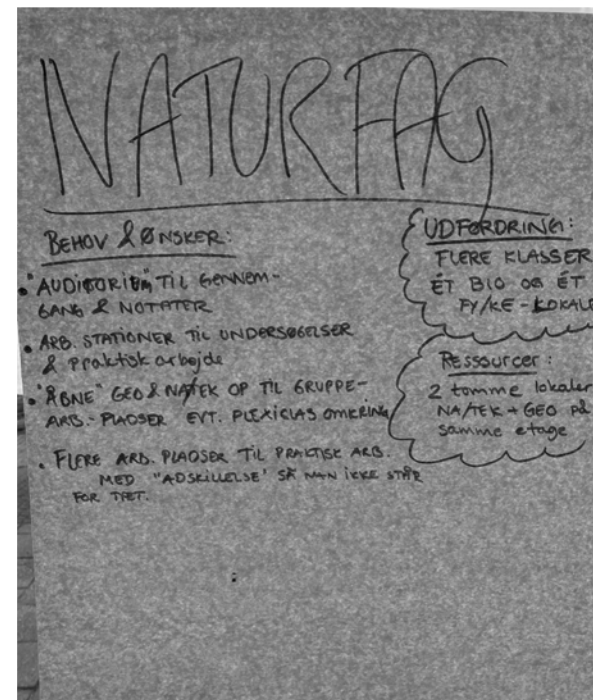 NATURFAG
BEHOV & ØNSKER:
• "AUDITORIUM" TIL GENNEM-
GANG & NOTATER
• ARB. STATIONER TIL UNDERSØGELSER
& Praktisk arbejde
• "ÅBNE" GEO & NA/TEK OP TIL GRUPPE-
ARB.-PLADSER EVT. PLEXIGLAS OMKRING
• FLERE ARB. PLADSER TIL PRAKTISK ARB.
MED "ADSKILLELSE" SÅ MAN IKKE STÅR
FOR TÆT.
UDFORDRING:
FLERE KLASSER
ÉT BIO OG ÉT
FY/KE-LOKALE
Ressourcer:
2 tomme lokaler
NA/TEK + GEO på
samme etage